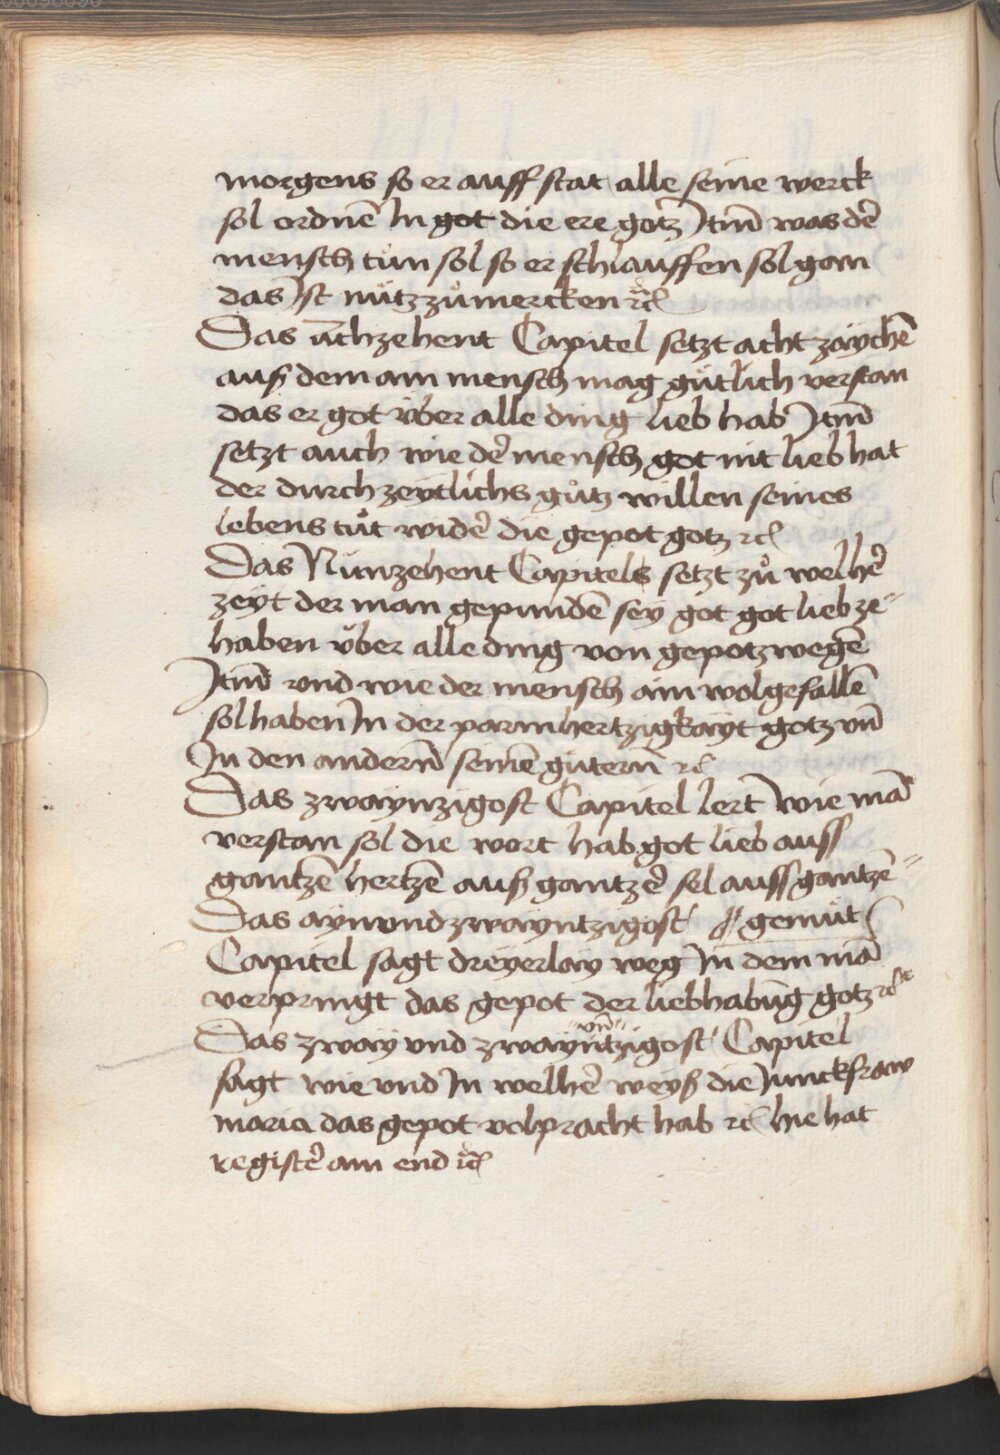 morgens so er auff stat alle seine werck
sol ordnē In got die ere gotz Itm̄ was dē
mensch tůn sol so er schlauffen sol gan
das Ist nütz zů mercken ⁊c̄
Das achzehent Capitel setzt acht zaychē
auß dem ain mensch mag gůtlich verstan
das er got v̈ber alle ding lieb hab Itm̄
setzt auch wie dē mensch got nit lieb hat
der durch zeytlichs gůtz willen seines
lebens tůt widē die gepot gotz ⁊c
Das Nünzehent Capitels setzt zů welhē
zeyt der man gepundē sey got got lieb ze⸗
haben v̈ber alle ding von gepotz wegē
Itm̄ vnd wie der mensch ain wolgefallē
sol haben In der parmhertzigkayt gotz vn̄
In den andern̄ seinē gütern ⁊c
Das zwaynzigost Capitel lert wie mā
verstan sol die wort hab got lieb auss
gantzē hertzē auß gantzē sel auss gantzē⸗
Das aynvndzwayntzigost gemüt
Capitel sagt dreyerlay weg In dem mā
verpringt das gepot der liebhabūg gotz ⁊c
Das zway vnd zwayntzigost Capitel
sagt wie vnd In welhē weyß die Junckfraw
maria das gepot volpracht hab ⁊c hie hat
registē am end ⁊c̄